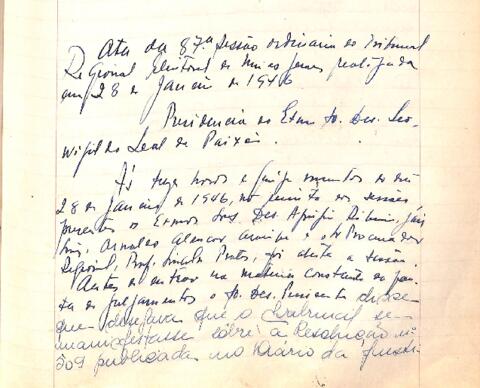 Ata da 87ª sessão ordinária do Tribunal
Regional Eleitoral de Minas Gerais realizada
em 28 de Janeiro de 1946
Presidencia do Exmo. Sr. Des. Leo-
vigildo Leal da Paixão.
Às treze horas e quinze minutos do dia
28 de Janeiro de 1946, no recinto das sessões,
presentes os Exmos Srs. Des. Aprigio Ribeiro, Jair
Lins, Arnaldo Alencar Araripe e o dr Procurador
Regional, Prof. Onofre, foi aberta a sessão.
Antes de entrar na materia constante da pau-
ta de julgamentos o Sr. Des. Presidente disse
que desejava que o Tribunal se
manifestasse sôbre a Resolução nº
509 publicada no Diário da Justi-